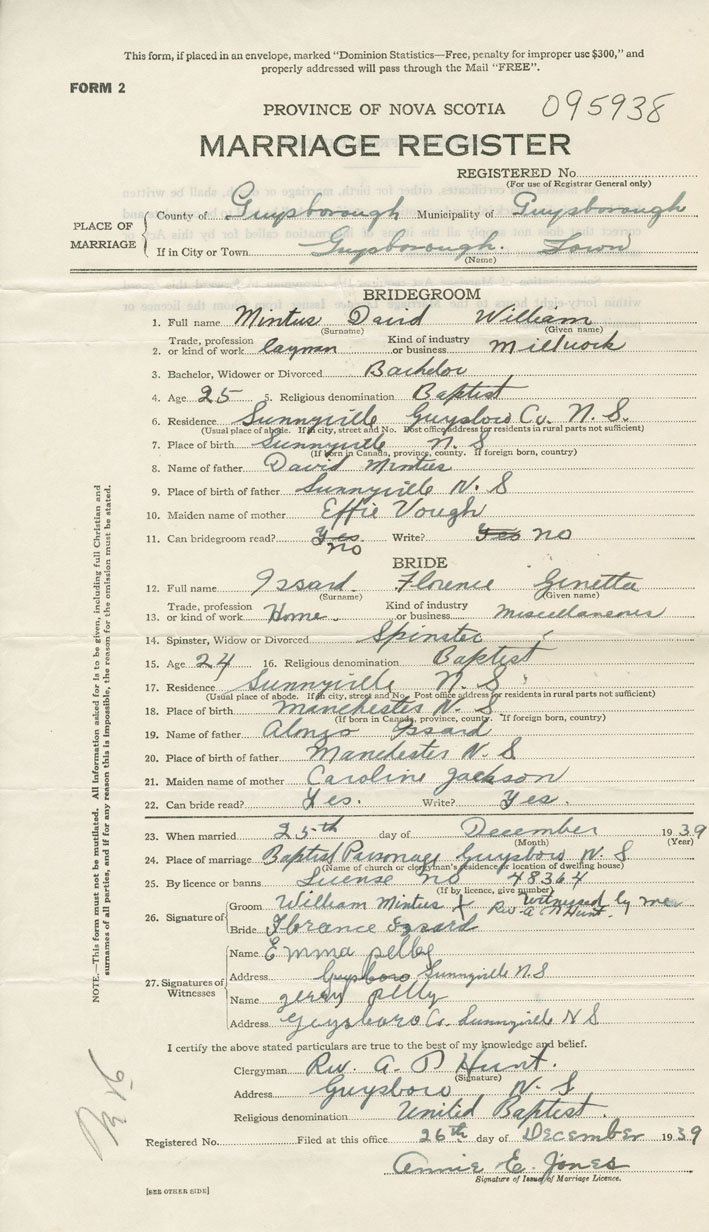 This form, if placed in an envelope, marked "Dominion Statistics—Free, penalty for improper use $300," and
properly addressed will pass through the Mail "FREE".
FORM 2
PROVINCE OF NOVA SCOTIA 095938
MARRIAGE REGISTER
REGISTERED No.
(For use of Registrar General only)
PLACE OF MARRIAGE
County of Guysborough Municipality of Guysborough
If in City or Town Guysborough. Town
(Name)
BRIDEGROOM
1. Full name Mintus David William
(Surname) (Given name)
2. Trade, profession or kind of work Layman Kind of industry or business Millwork
3. Bachelor, Widower or Divorced Bachelor
4. Age 25 5. Religious denomination Baptist
6. Residence Sunnyville Guysboro Co. N. S.
(Usual place of abode. If in city, street and No. Post office address for residents in rural parts not sufficient)
7. Place of birth Sunnyville N. S
(If born in Canada, province, county. If foreign born, country)
8. Name of father David Mintus
9. Place of birth of father Sunnyville N. S
10. Maiden name of mother Effie Vough
11. Can bridegroom read? Yes. no Write? Yes no
BRIDE
12. Full name Issard. Florence Ginetta
(Surname) (Given name)
13. Trade, profession or kind of work Home. Kind of industry or business Miscellaneous
14. Spinster, Widow or Divorced Spinster
15. Age 24 16. Religious denomination Baptist
17. Residence Sunnyville N. S
(Usual place of abode. If in city, street and No. Post office address for residents in rural parts not sufficient)
18. Place of birth Manchester N. S
(If born in Canada, province, county. If foreign born, country)
19. Name of father Alonzo Issard
20. Place of birth of father Manchester N. S
21. Maiden name of mother Caroline Jackson
22. Can bride read? Yes. Write? Yes.
23. When married 25th day of December 1939
(Month) (Year)
24. Place of marriage Baptist Parsonage Guysboro N. S
(Name of church or clergyman's residence or location of dwelling house)
25. By licence or banns License no 48364
(If by licence, give number)
26. Signature of
Groom William Mintus X Witnessed by me
Rev A D Hunt.
Bride Florance Izzard
27. Signatures of Witnesses
Name Emma pelly
Address Guysboro Sunnyville N. S
Name Jerry pelly
Address Guysboro Co. Sunnyville N S
I certify the above stated particulars are true to the best of my knowledge and belief.
Clergyman Rev. A. D Hunt.
(Signature)
Address Guysboro N. S
Religious denomination United Baptist.
Registered No. Filed at this office 26th day of December 1939
Annie E. Jones
Signature of Issuer of Marriage Licence.
[SEE OTHER SIDE]
NOTE.—This form must not be mutilated. All information asked for is to be given, including full Christian and
surnames of all parties, and if for any reason this is impossible, the reason for the omission must be stated.